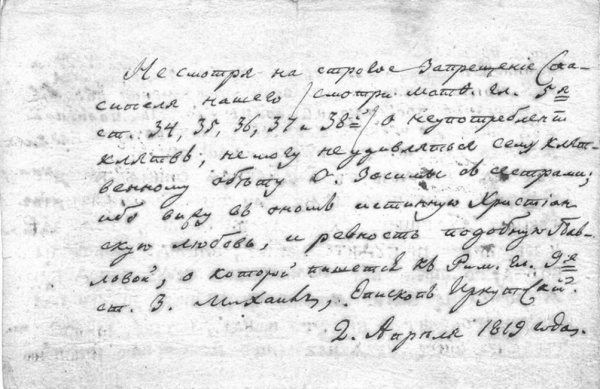 Несмотря на строгое Запрещеніе Спа-
сителя нашего /смотри матѳ. гл. 5я
ст. 34, 35, 36, 37 и 38я/ о неупотребленіи
клятвъ, не могу неудивляться сему клят-
венному обѣту О. Зосимы съ сестрами;
ибо вижу въ ономъ истинную Христіан
скую любовь, и ревность подобную Пав-
ловой, о которой пишетъ къ Рим. гл. 9я
ст. 3. Михаилъ, Епископъ Иркутскій.
2. Апрѣля 1819 года.